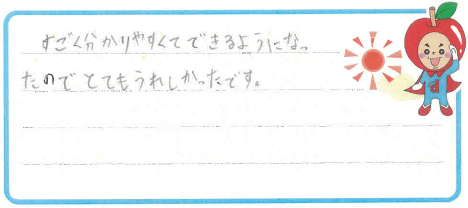 すごく分かりやすくてできるようになっ
たのでとてもうれしかったです。
d